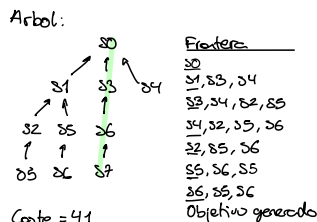 Arbol:
s0
s1 s3 s4
s2 s5 s6
s3 s6 s7
Frontera
s0
s1, s3, s4
s3, s4, s2, s5
s4, s2, s5, s6
s2, s5, s6
s5, s6, s5
s6, s5, s6
Objetivo generado
Coste = 41